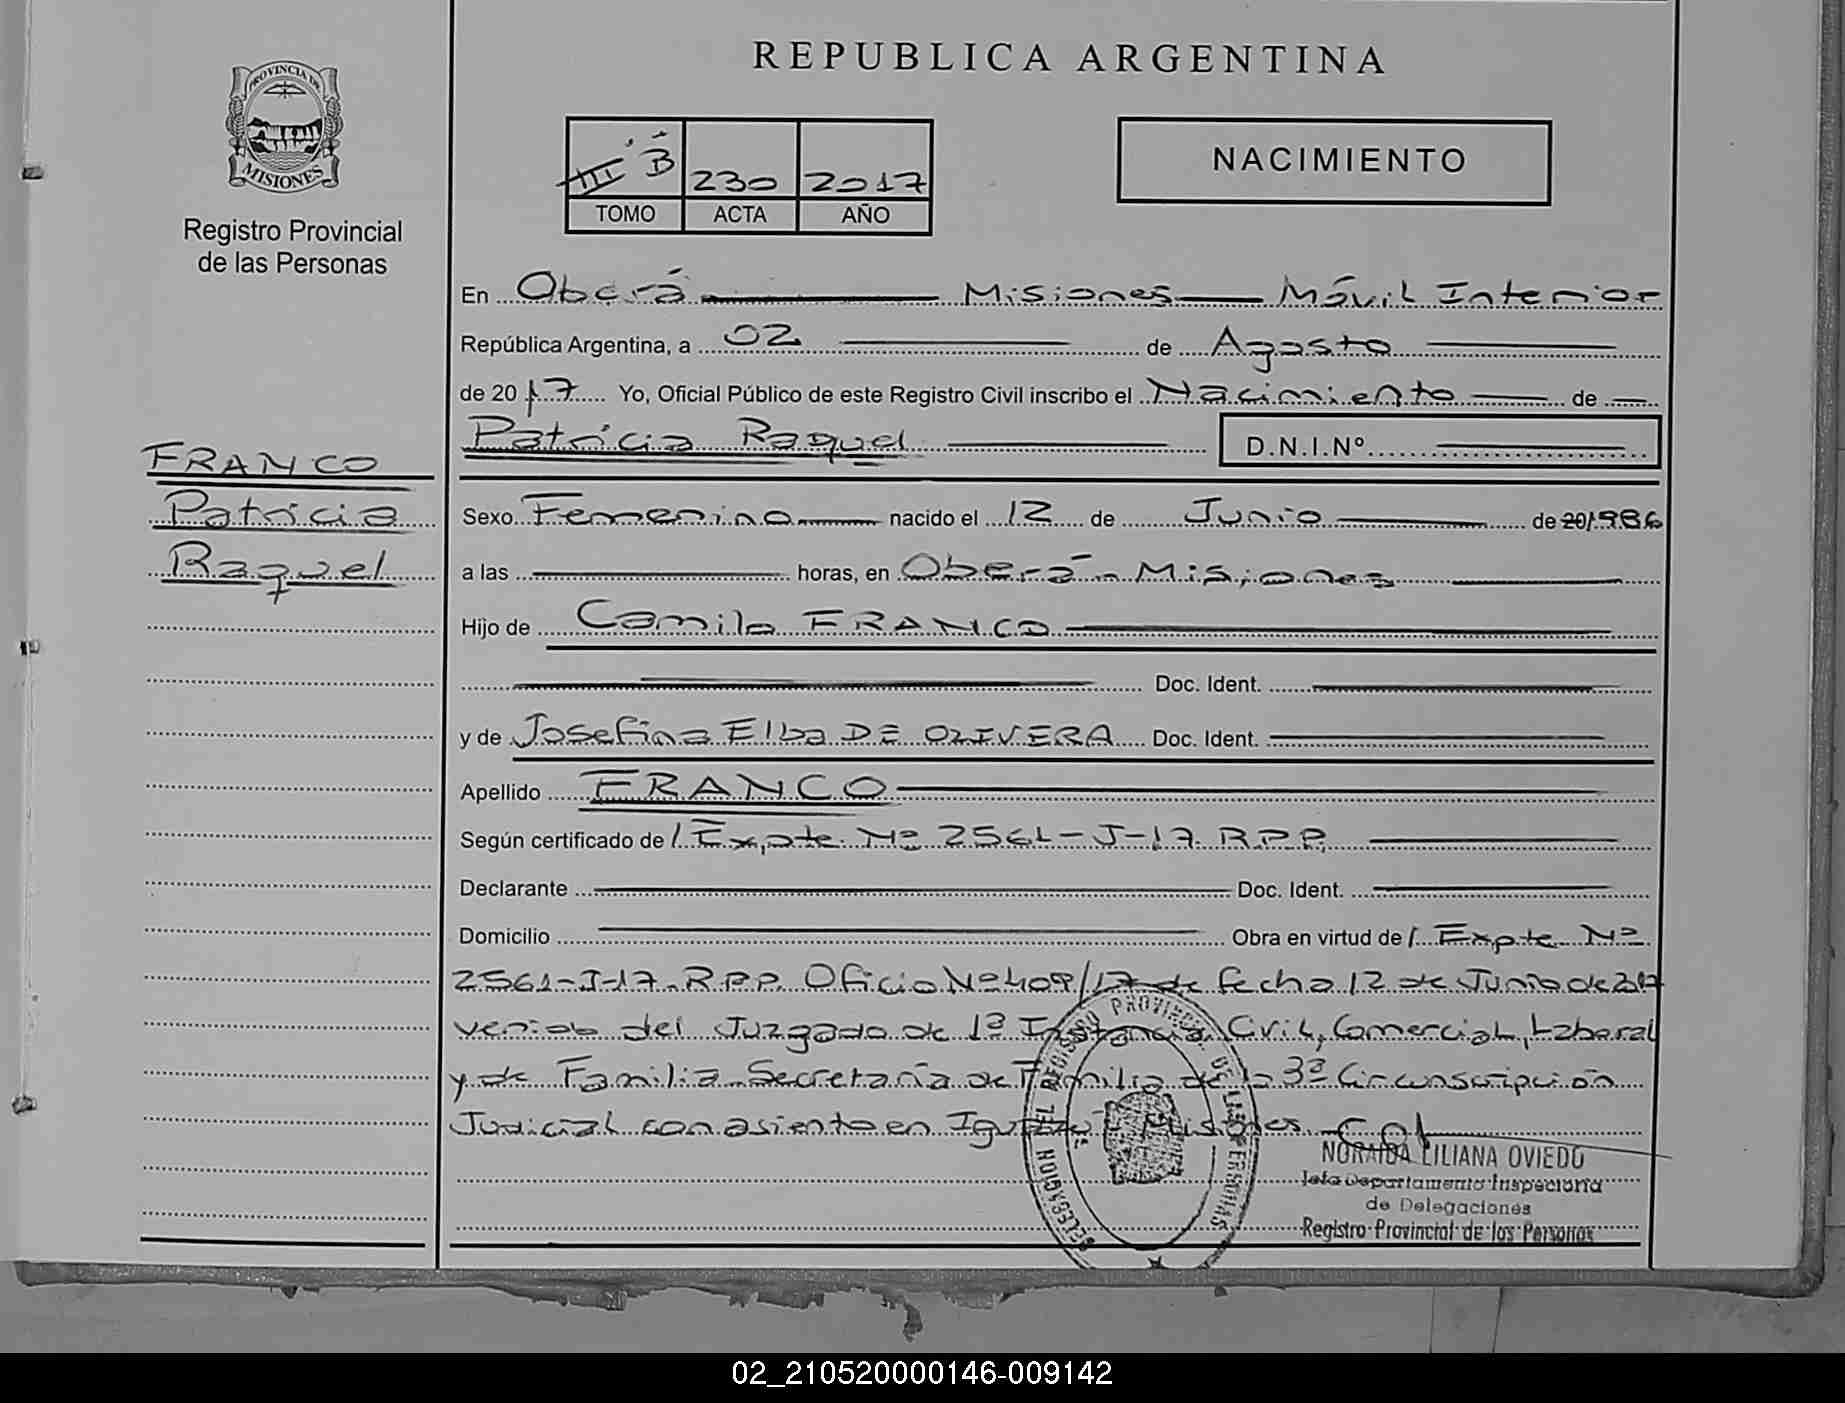 REPUBLICA ARGENTINA
PROVINCIA DE
MISIONES
Registro Provincial
de las Personas
III "B" 230 2017
TOMO ACTA AÑO
NACIMIENTO
En Oberá Misiones Móvil Interior
República Argentina, a 02 de Agosto
de 2017 Yo, Oficial Público de este Registro Civil inscribo el Nacimiento de
Patricia Raquel D.N.I.Nº
FRANCO
Patricia
Raquel
Sexo Femenino nacido el 12 de Junio de 20 1986
a las horas, en Oberá - Misiones
Hijo de Camilo FRANCO
Doc. Ident.
y de Josefina Elba DE OLIVERA Doc. Ident.
Apellido FRANCO
Según certificado de / Expte. Nº 2561-J-17 R.P.P.
Declarante Doc. Ident.
Domicilio Obra en virtud de / Expte Nº
2561-J-17-R.P.P. Oficio Nº 409/17 de fecha 12 de Junio de 2017
del Juzgado de 1ª Instancia Civil, Comercial, Laboral
y de Familia Secretaría de Familia de la 3ª Circunscripción
Judicial con asiento en Iguazú - Misiones
DELEGACION DEL REGISTRO PROVINCIAL DE LAS PERSONAS
NORAIDA LILIANA OVIEDO
Jefa Departamento Inspectoría
de Delegaciones
Registro Provincial de las Personas
02_210520000146-009142